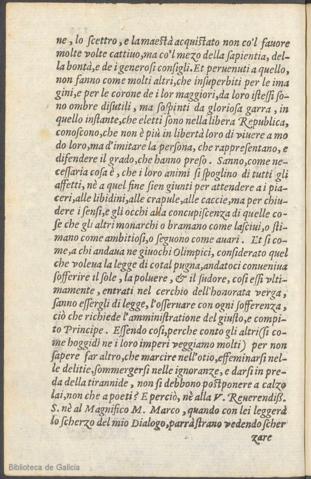 ne, lo scettro, e la maestà acquistato non co'l fauore
molte volte cattiuo, ma co'l mezo della sapientia, del-
la bontà, e de i generosi consigli. Et peruenuti a quello,
non fanno come molti altri, che insuperbiti per le ima
gini, e per le corone de i lor maggiori, da loro istessi so-
no ombre disutili, ma sospinti da gloriosa garra, in
quello instante, che eletti sono nella libera Republica,
conoscono, che non è più in libertà loro di viuere a mo
do loro, ma d'imitare la persona, che rappresentano, e
difendere il grado, che hanno preso. Sanno, come ne-
cessaria cosa è, che i loro animi si spoglino di tutti gli
affetti, nè a quel fine sien giunti per attendere a i pia-
ceri, alle libidini, alle crapule, alle caccie, ma per chiu-
dere i sensi, e gli occhi alla concupiscenza di quelle co-
se che gli altri monarchi o bramano come lasciui, o sti-
mano come ambitiosi, o seguono come auari. Et si co-
me, a chi andaua ne giuochi Olimpici, considerato quel
che voleua la legge di cotal pugna, andatoci conueniua
sofferire il sole, la poluere, & il sudore, cosi essi vlti-
mamente, entrati nel cerchio dell'honorata verga,
sanno essergli di legge, l'osseruare con ogni sofferenza,
ciò che richiede l'amministratione del giusto, e compi-
to Principe. Essendo cosi, perche conto gli altri (si co-
me hoggidì ne i loro imperi veggiamo molti) per non
sapere far altro, che marcire nell'otio, effeminarsi nel-
le delitie, sommergersi nelle ignoranze, e darsi in pre-
da della tirannide, non si debbono postponere a calzo
lai, non che a poeti? E perciò, nè alla V. Reuerendiss.
S. nè al Magnifico M. Marco, quando con lei leggerà
lo scherzo del mio Dialogo, parrà strano vedendo scher
zare
Biblioteca de Galicia